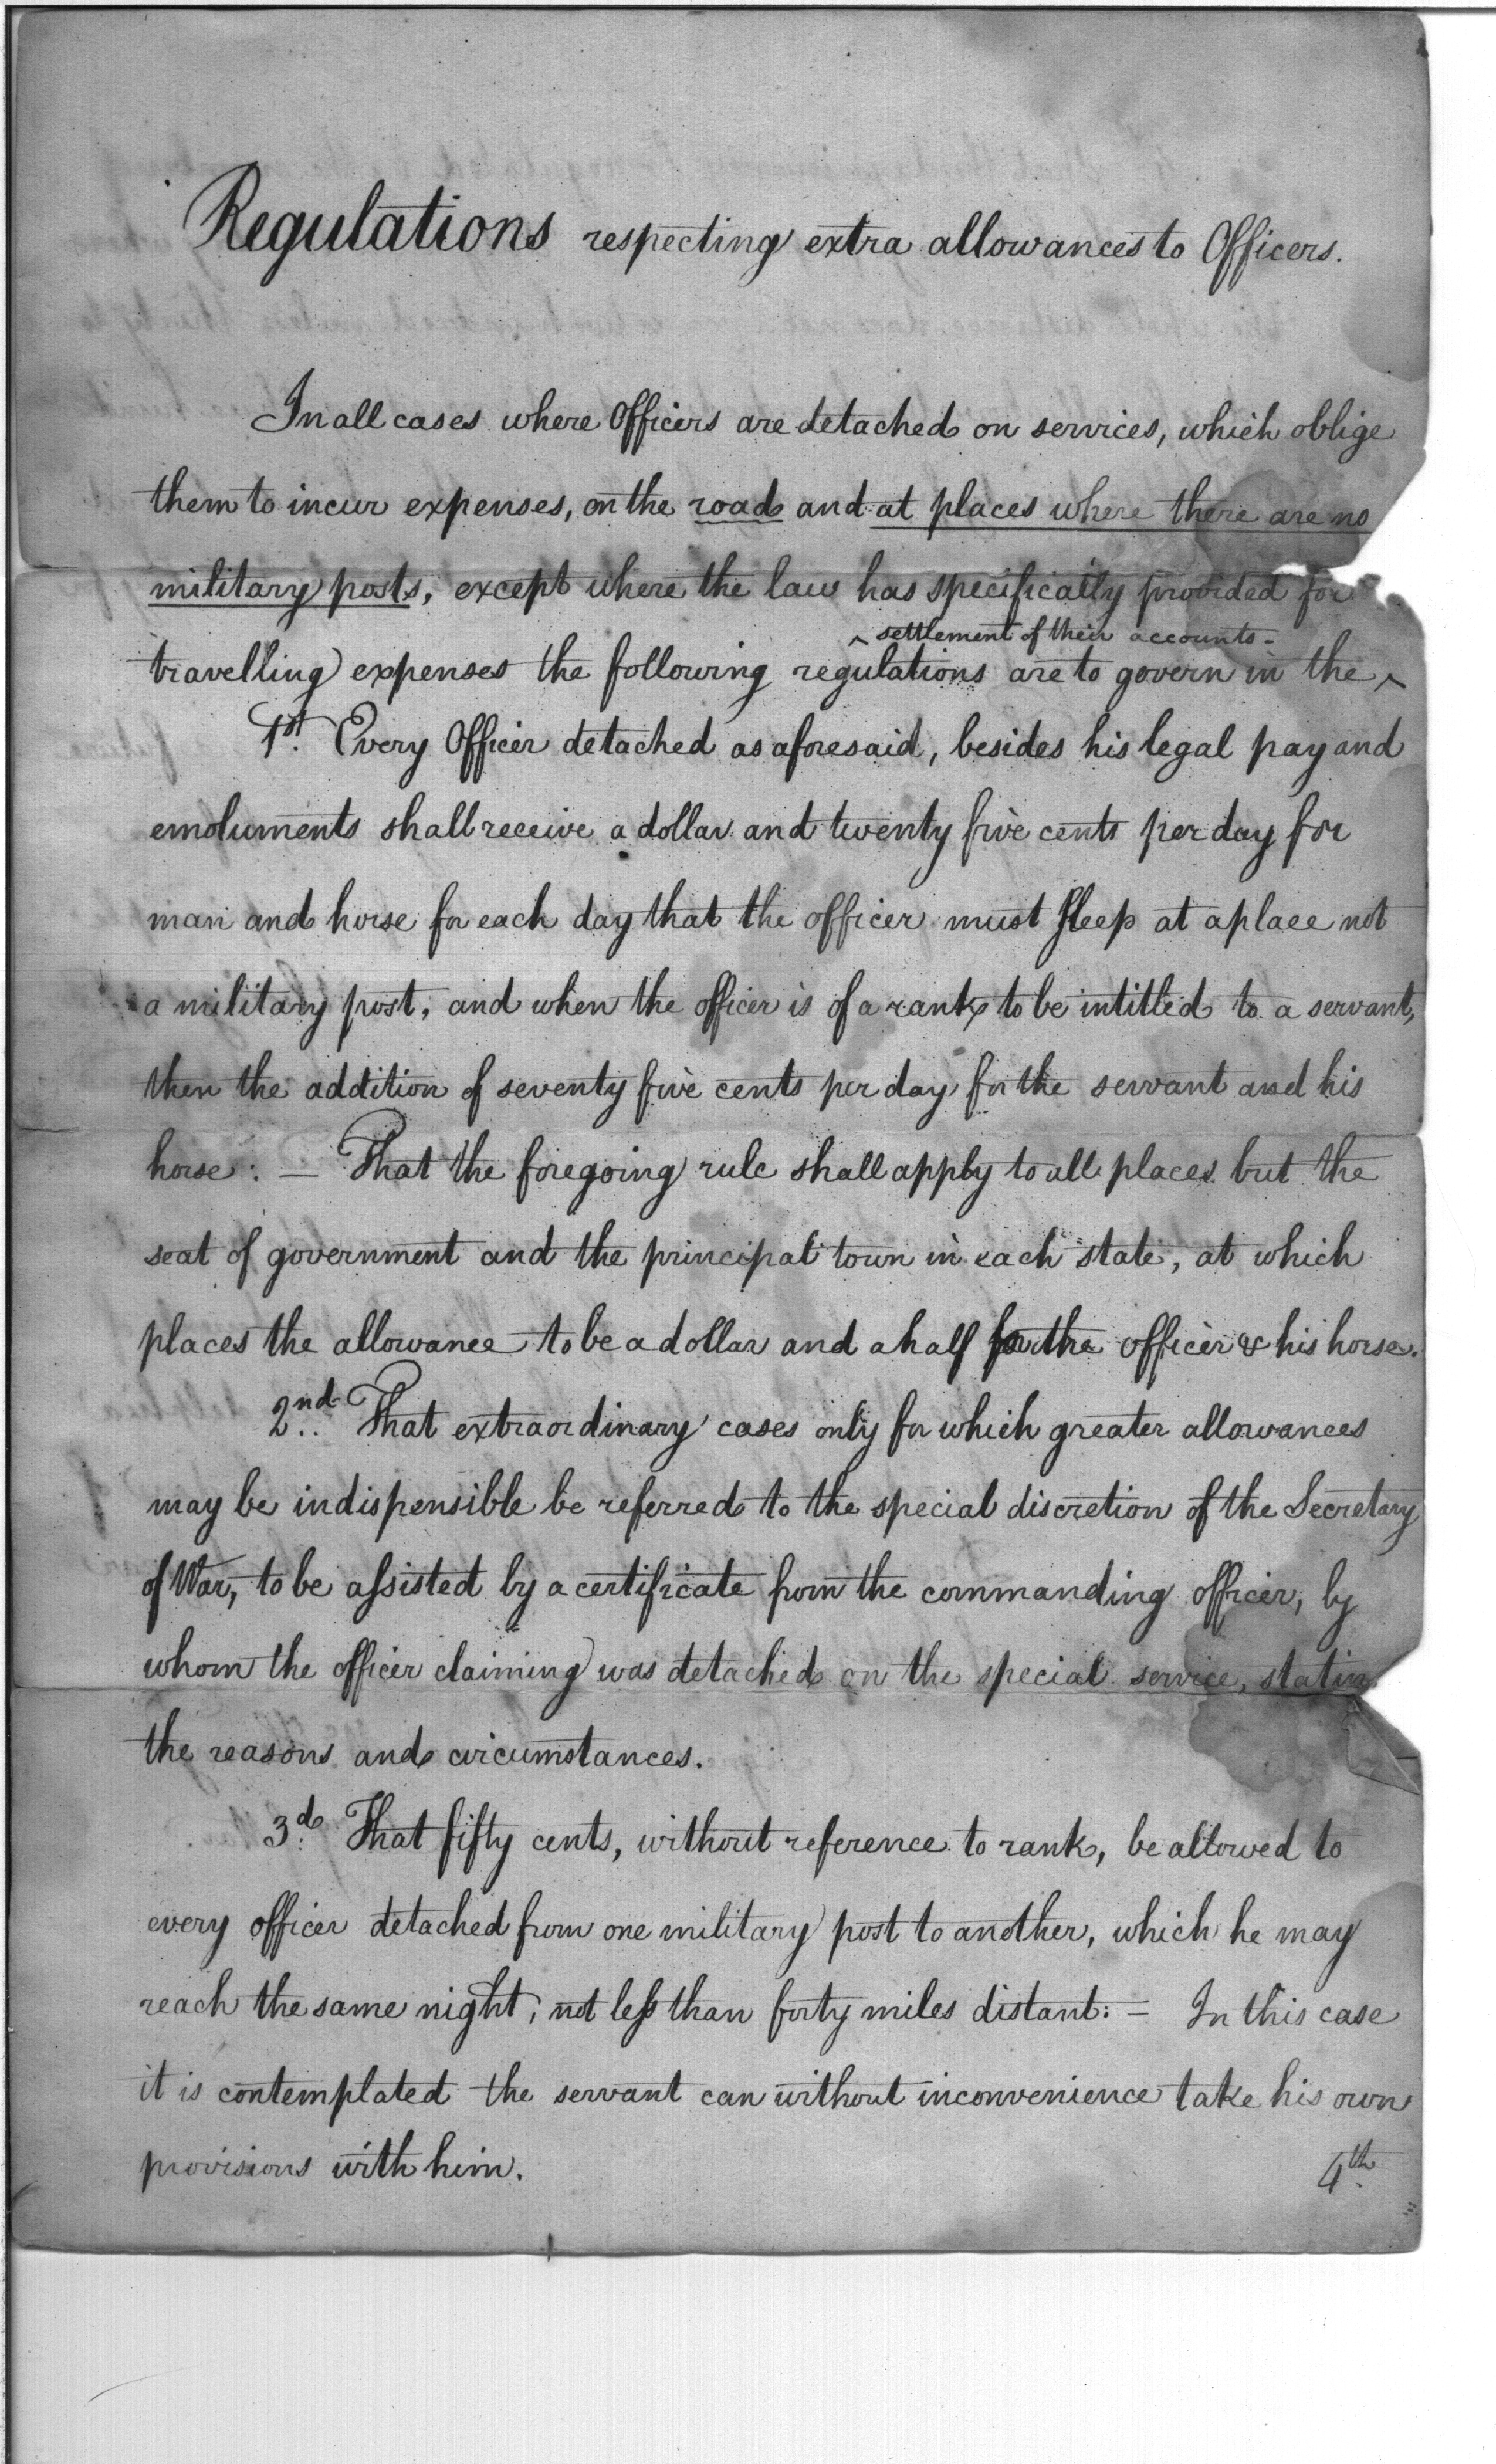 Regulations respecting extra allowances to Officers.
In all cases where Officers are detached on services, which oblige
them to incur expenses, on the road and at places where there are no
military posts, except where the law has specifically provided for
^ settlement of their accounts -
travelling expenses the following regulations are to govern in the ^
1st. Every Officer detached as aforesaid, besides his legal pay and
emoluments shall receive a dollar and twenty five cents per day for
man and horse for each day that the officer must sleep at a place not
a military post, and when the officer is of a rank to be intitled to a servant,
then the addition of seventy five cents per day for the servant and his
horse: — That the foregoing rule shall apply to all places but the
seat of government and the principal town in each state, at which
places the allowance to be a dollar and a half for the officer & his horse.
2nd. That extraordinary cases only for which greater allowances
may be indispensible be referred to the special discretion of the Secretary
of War, to be assisted by a certificate from the commanding officer, by
whom the officer claiming was detached on the special service, statin
the reasons and circumstances.
3d. That fifty cents, without reference to rank, be allowed to
every officer detached from one military post to another, which he may
reach the same night, not less than forty miles distant: — In this case
it is contemplated the servant can without inconvenience take his own
provisions with him.
4th.